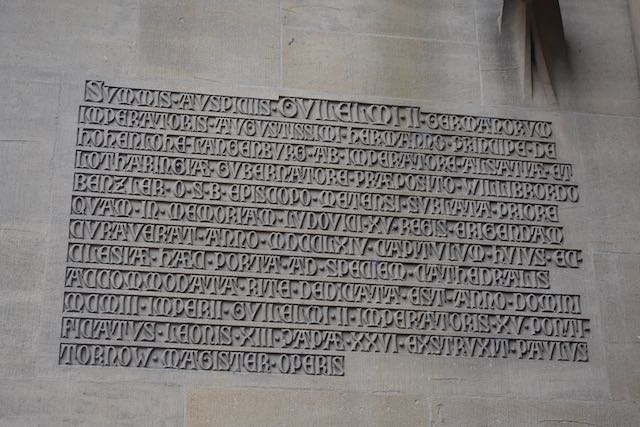 SVMMIS·AVSPICIIS·GVILELMI·II·GERMANORVM
IMPERATORIS·AVGVSTISSIMI·HERMANNO·PRINCIPE·DE
HOHENLOHE·LANGENBVRG·AB·IMPERATORE·ALSATIÆ·ET
LOTHARINGIÆ·GVBERNATORE·PRÆPOSITO·WILLIBRORDO
BENZLER·O·S·B·EPISCOPO·METENSI·SVBLATA·PRIORE
QVAM·IN·MEMORIAM·LVDOVICI·XV·REGIS·ERIGENDAM
CVRAVERAT·ANNO·MDCCLXIV·CAPITVLVM·HVIVS·EC-
CLESIÆ·HÆC·PORTA·AD·SPECIEM·CATHEDRALIS
ACCOMMODATA·RITE·DEDICATA·EST·ANNO·DOMINI
MCMIII·IMPERII·GVILELMI·II·IMPERATORIS·XV·PONTI-
FICATVS·LEONIS·XIII·PAPÆ·XXVI·EXSTRVXIT·PAVLVS
TORNOW·MAGISTER·OPERIS